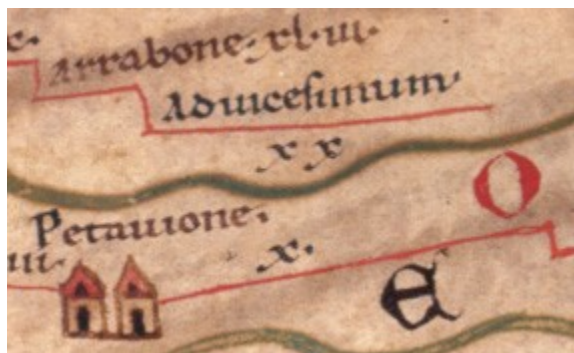 x.
Arrabone. xl. iii.
Aduicesimum.
x x
O
Petauione.
iii.
x.
E